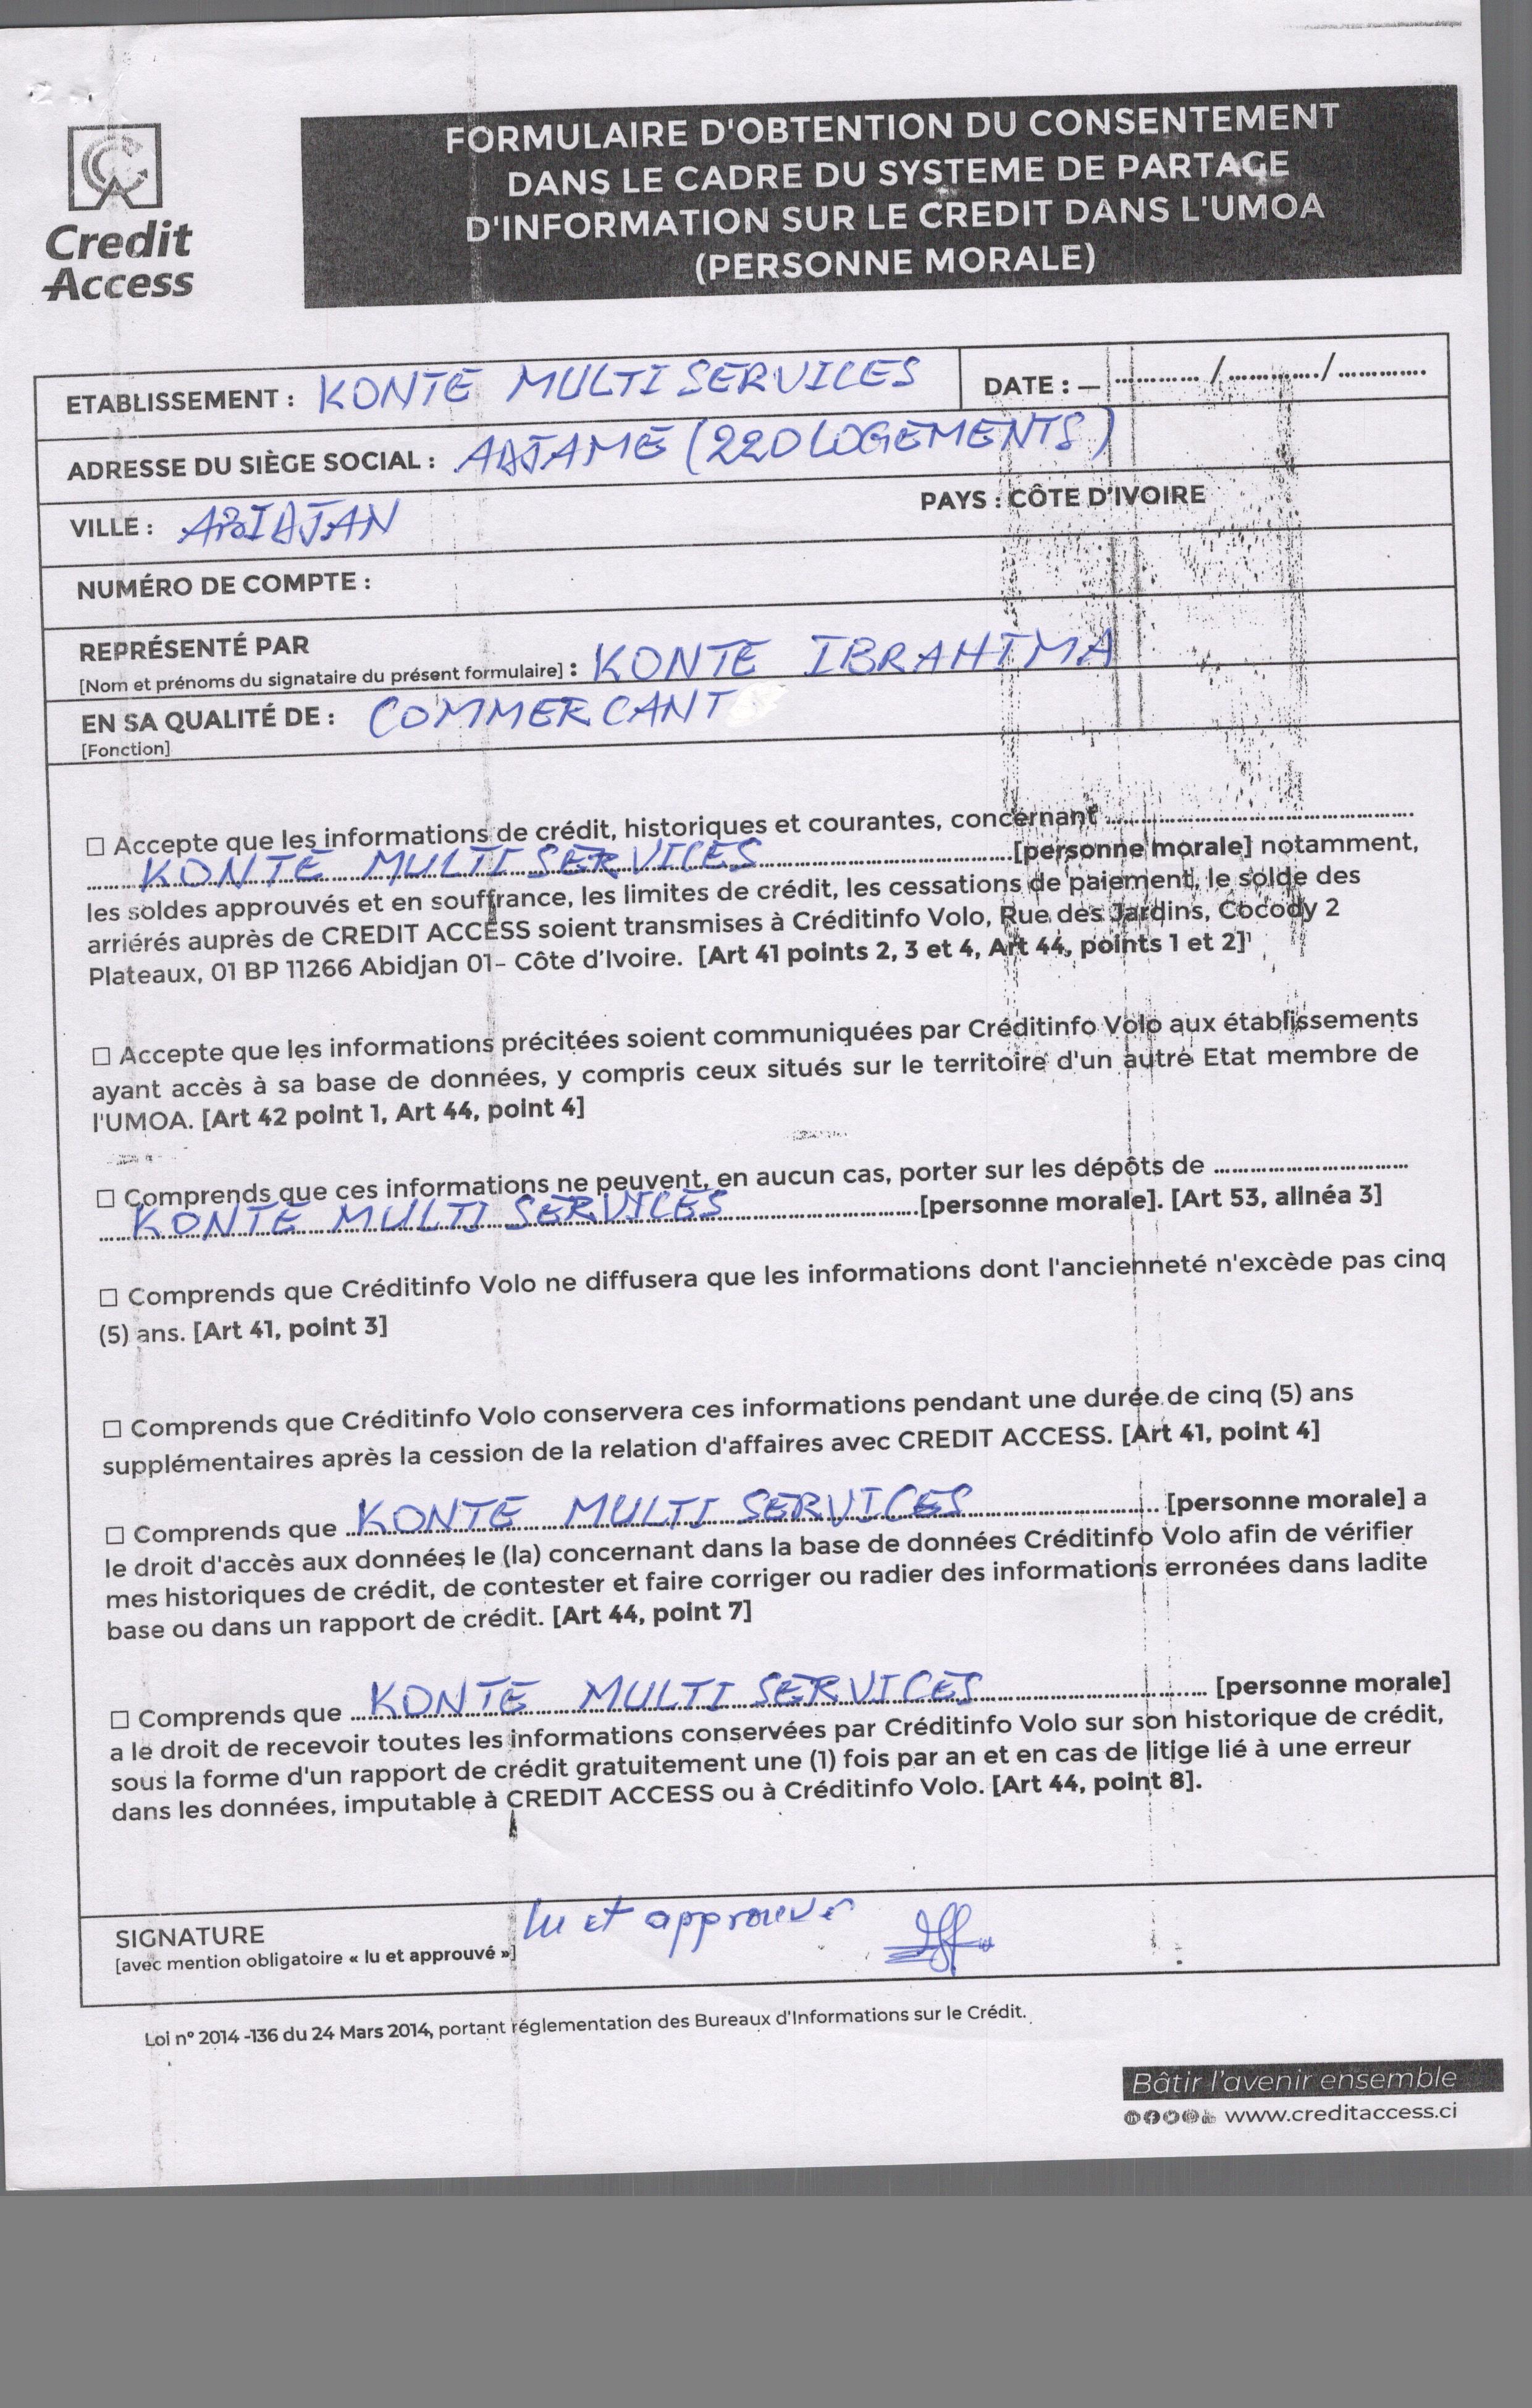 Credit
Access
FORMULAIRE D'OBTENTION DU CONSENTEMENT
DANS LE CADRE DU SYSTEME DE PARTAGE
D'INFORMATION SUR LE CREDIT DANS L'UMOA
(PERSONNE MORALE)
ETABLISSEMENT : KONTE MULTI SERVICES
DATE : — ............ / ............./ .............
ADRESSE DU SIÈGE SOCIAL : ADJAME (220 LOGEMENTS)
VILLE : ABIDJAN
PAYS : CÔTE D'IVOIRE
NUMÉRO DE COMPTE :
REPRÉSENTÉ PAR
[Nom et prénoms du signataire du présent formulaire] : KONTE IBRAHIMA
EN SA QUALITÉ DE : COMMERCANT
[Fonction]
☐ Accepte que les informations de crédit, historiques et courantes, concernant ..............................
KONTE MULTI SERVICES ..............................[personne morale] notamment,
les soldes approuvés et en souffrance, les limites de crédit, les cessations de paiement, le solde des
arriérés auprès de CREDIT ACCESS soient transmises à Créditinfo Volo, Rue des Jardins, Cocody 2
Plateaux, 01 BP 11266 Abidjan 01- Côte d'Ivoire. [Art 41 points 2, 3 et 4, Art 44, points 1 et 2]¹
☐ Accepte que les informations précitées soient communiquées par Créditinfo Volo aux établissements
ayant accès à sa base de données, y compris ceux situés sur le territoire d'un autre Etat membre de
l'UMOA. [Art 42 point 1, Art 44, point 4]
☐ Comprends que ces informations ne peuvent, en aucun cas, porter sur les dépôts de ..............................
KONTE MULTI SERVICES ..............................[personne morale]. [Art 53, alinéa 3]
☐ Comprends que Créditinfo Volo ne diffusera que les informations dont l'ancienneté n'excède pas cinq
(5) ans. [Art 41, point 3]
☐ Comprends que Créditinfo Volo conservera ces informations pendant une durée de cinq (5) ans
supplémentaires après la cession de la relation d'affaires avec CREDIT ACCESS. [Art 41, point 4]
☐ Comprends que KONTE MULTI SERVICES .............................. [personne morale] a
le droit d'accès aux données le (la) concernant dans la base de données Créditinfo Volo afin de vérifier
mes historiques de crédit, de contester et faire corriger ou radier des informations erronées dans ladite
base ou dans un rapport de crédit. [Art 44, point 7]
☐ Comprends que KONTE MULTI SERVICES .............................. [personne morale]
a le droit de recevoir toutes les informations conservées par Créditinfo Volo sur son historique de crédit,
sous la forme d'un rapport de crédit gratuitement une (1) fois par an et en cas de litige lié à une erreur
dans les données, imputable à CREDIT ACCESS ou à Créditinfo Volo. [Art 44, point 8].
SIGNATURE
lu et approuvé
[avec mention obligatoire « lu et approuvé »]
Loi n° 2014 -136 du 24 Mars 2014, portant réglementation des Bureaux d'Informations sur le Crédit.
Bâtir l'avenir ensemble
www.creditaccess.ci